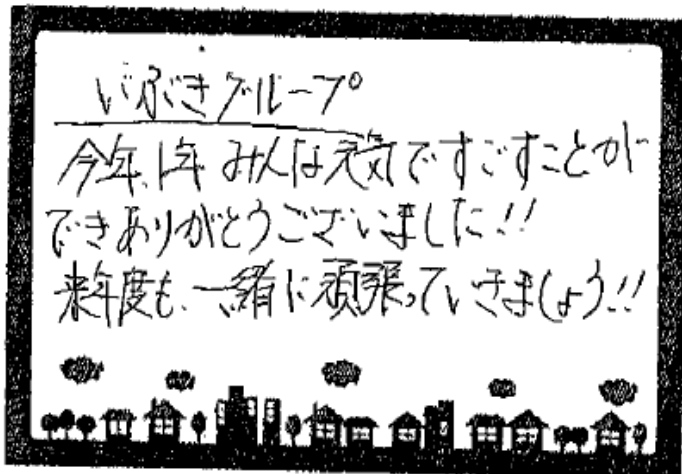 いぶきグループ
今年、1年 みんな元気ですごすことが
できありがとうございました!!
来年度も、一緒に頑張っていきましょう!!